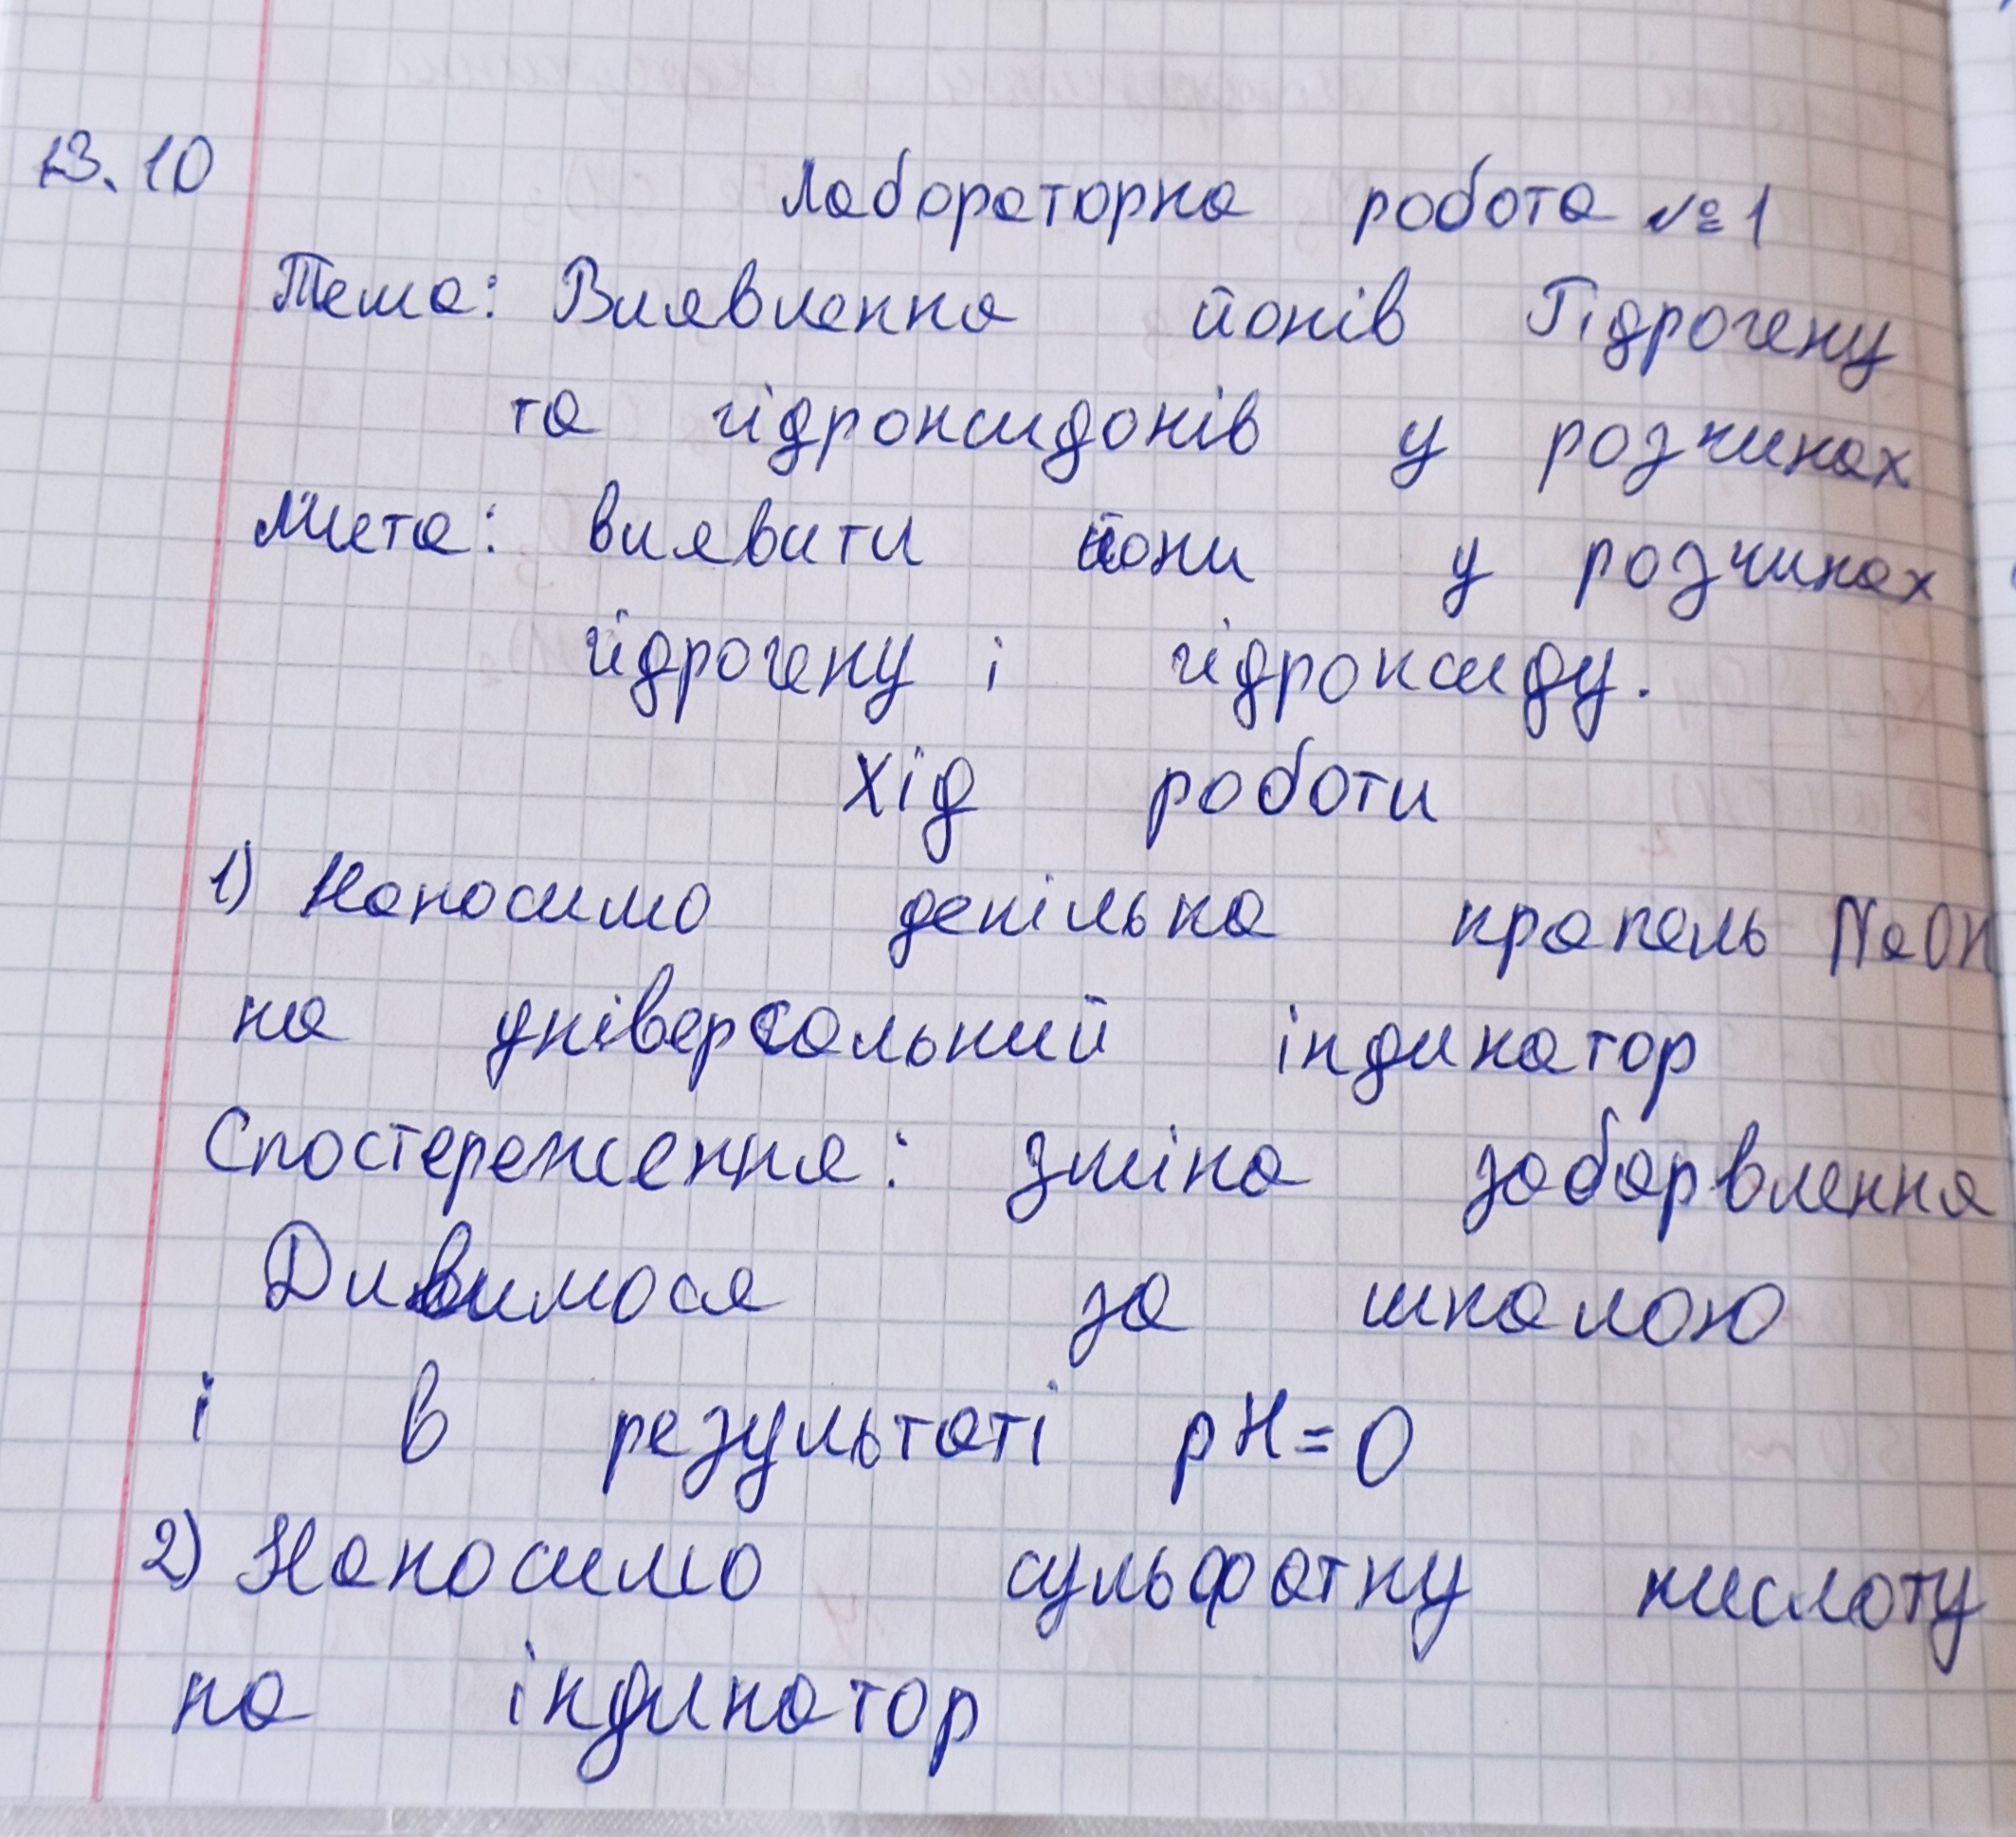 13.10
Лабораторна робота №1
Тема: Виявлення йонів Гідрогену
та гідроксидонів у розчинах
Мета: виявити йони у розчинах
гідрогену і гідроксиду.
Хід роботи
1) Наносимо декілька крапель NaOH
на універсальний індикатор
Спостереження: зміна забарвлення
Дивимося за шкалою
і в результаті pH=0
2) Наносимо сульфатну кислоту
на індикатор